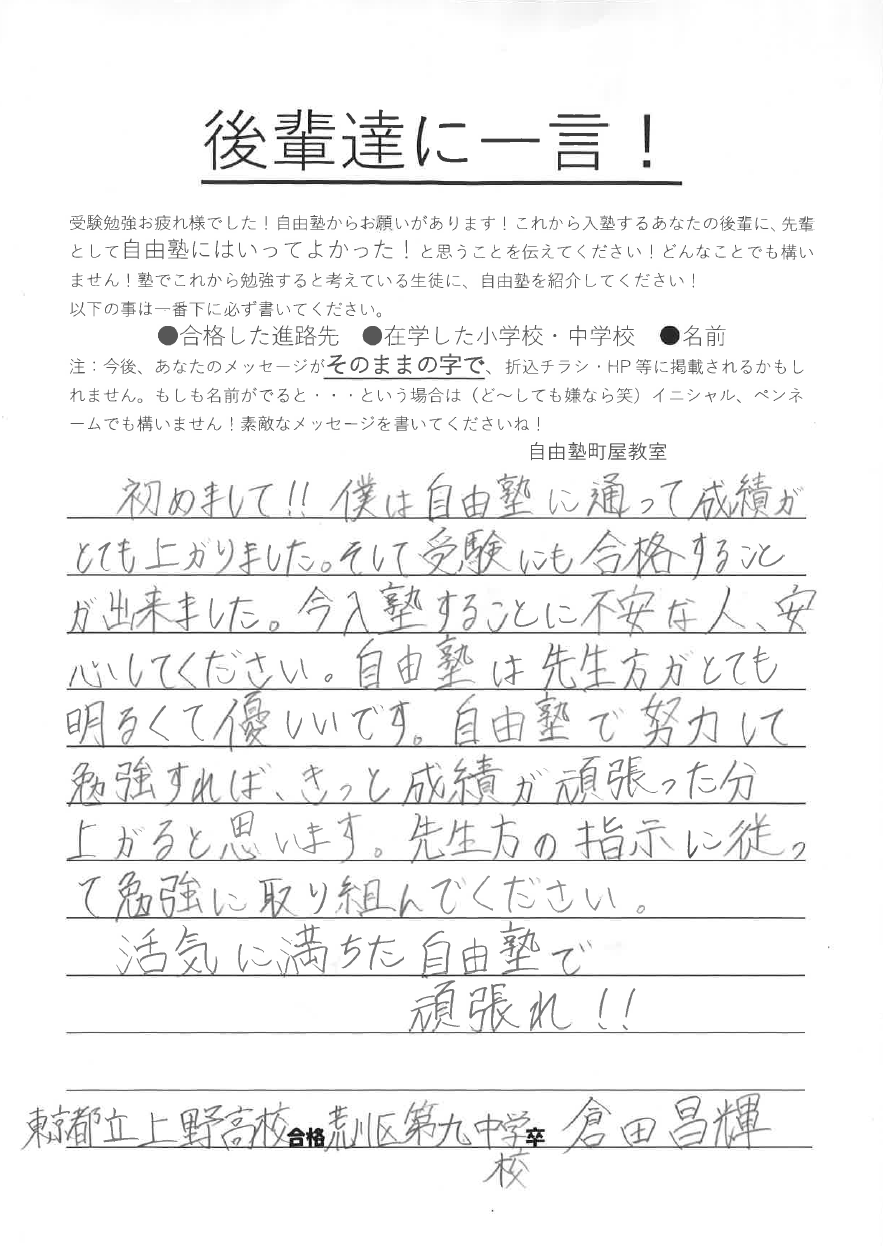 後輩達に一言！
受験勉強お疲れ様でした！自由塾からお願いがあります！これから入塾するあなたの後輩に、先輩
として自由塾にはいってよかった！と思うことを伝えてください！どんなことでも構い
ません！塾でこれから勉強すると考えている生徒に、自由塾を紹介してください！
以下の事は一番下に必ず書いてください。
●合格した進路先　●在学した小学校・中学校　●名前
注：今後、あなたのメッセージがそのままの字で、折込チラシ・HP等に掲載されるかもし
れません。もしも名前がでると・・・という場合は（ど～しても嫌なら笑）イニシャル、ペンネ
ームでも構いません！素敵なメッセージを書いてくださいね！
自由塾町屋教室
初めまして!! 僕は自由塾に通って成績が
とても上がりました。そして受験にも合格すること
が出来ました。今入塾することに不安な人、安
心してください。自由塾は先生方がとても
明るくて優しいです。自由塾で努力して
勉強すれば、きっと成績が頑張った分
上がると思います。先生方の指示に従っ
て勉強に取り組んでください。
活気に満ちた自由塾で
頑張れ!!
東京都立上野高校合格荒川区第九中学校卒 倉田昌輝